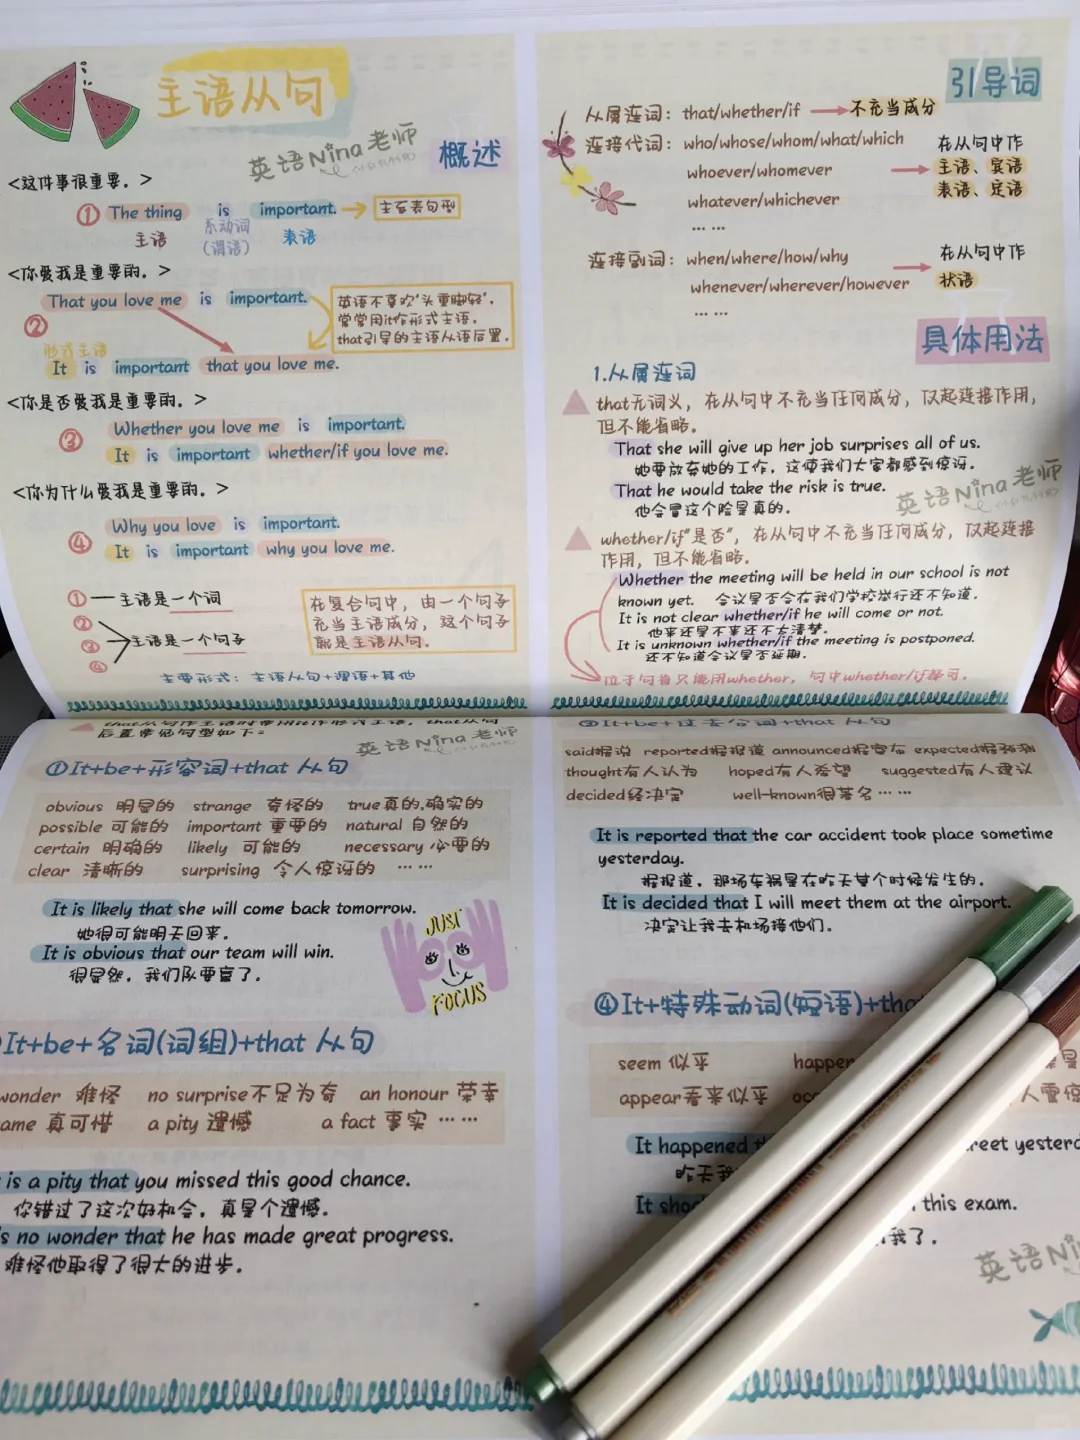 主语从句
英语Nina老师
概述
<这件事很重要。>
① The thing is important. → 主系表句型
主语 系动词 表语
(谓语)
<你爱我是重要的。>
That you love me is important.
②
英语不喜欢'头重脚轻'.
常常用it作形式主语.
that引导的主语从语后置.
形式主语
It is important that you love me.
<你是否爱我是重要的。>
③ Whether you love me is important.
It is important whether/if you love me.
<你为什么爱我是重要的。>
④ Why you love is important.
It is important why you love me.
① 主语是一个词
②
③ 主语是一个句子
④
在复合句中，由一个句子
充当主语成分，这个句子
就是主语从句.
主要形式：主语从句+谓语+其他
引导词
从属连词：that/whether/if → 不充当成分
连接代词：who/whose/whom/what/which
whoever/whomever
whatever/whichever
... ...
→ 在从句中作
主语、宾语
表语、定语
连接副词：when/where/how/why
whenever/wherever/however
... ...
→ 在从句中作
状语
具体用法
1.从属连词
that无词义，在从句中不充当任何成分，仅起连接作用，
但不能省略.
That she will give up her job surprises all of us.
她要放弃她的工作，这使我们大家都感到惊讶.
That he would take the risk is true.
他会冒这个险是真的.
英语Nina老师
whether/if"是否"，在从句中不充当任何成分，仅起连接
作用，但不能省略.
Whether the meeting will be held in our school is not
known yet. 会议是否会在我们学校举行还不知道.
It is not clear whether/if he will come or not.
他来还是不来还不太清楚.
It is unknown whether/if the meeting is postponed.
还不知道会议是否延期.
位于句首只能用whether，句中whether/if都可.
that从句作主语时常用it作形式主语，that从句
后置常见句型如下：
英语Nina老师
①It+be+形容词+that 从句
obvious 明显的 strange 奇怪的 true真的,确实的
possible 可能的 important 重要的 natural 自然的
certain 明确的 likely 可能的 necessary 必要的
clear 清晰的 surprising 令人惊讶的 ... ...
It is likely that she will come back tomorrow.
她很可能明天回来.
It is obvious that our team will win.
很显然，我们队要赢了.
JUST
FOCUS
It+be+名词(词组)+that 从句
wonder 难怪 no surprise不足为奇 an honour 荣幸
ame 真可惜 a pity 遗憾 a fact 事实 ... ...
is a pity that you missed this good chance.
你错过了这次好机会，真是个遗憾.
s no wonder that he has made great progress.
难怪他取得了很大的进步.
③It+be+过去分词+that 从句
said据说 reported据报道 announced据宣布 expected据预测
thought有人认为 hoped有人希望 suggested有人建议
decided经决定 well-known很著名 ... ...
It is reported that the car accident took place sometime
yesterday.
据报道，那场车祸是在昨天某个时候发生的.
It is decided that I will meet them at the airport.
决定让我去机场接他们.
④It+特殊动词(短语)+tha
seem 似乎 happe
appear看来似乎
It happened reet yesterd
昨天我
It sho this exam.
我了.
英语Ni